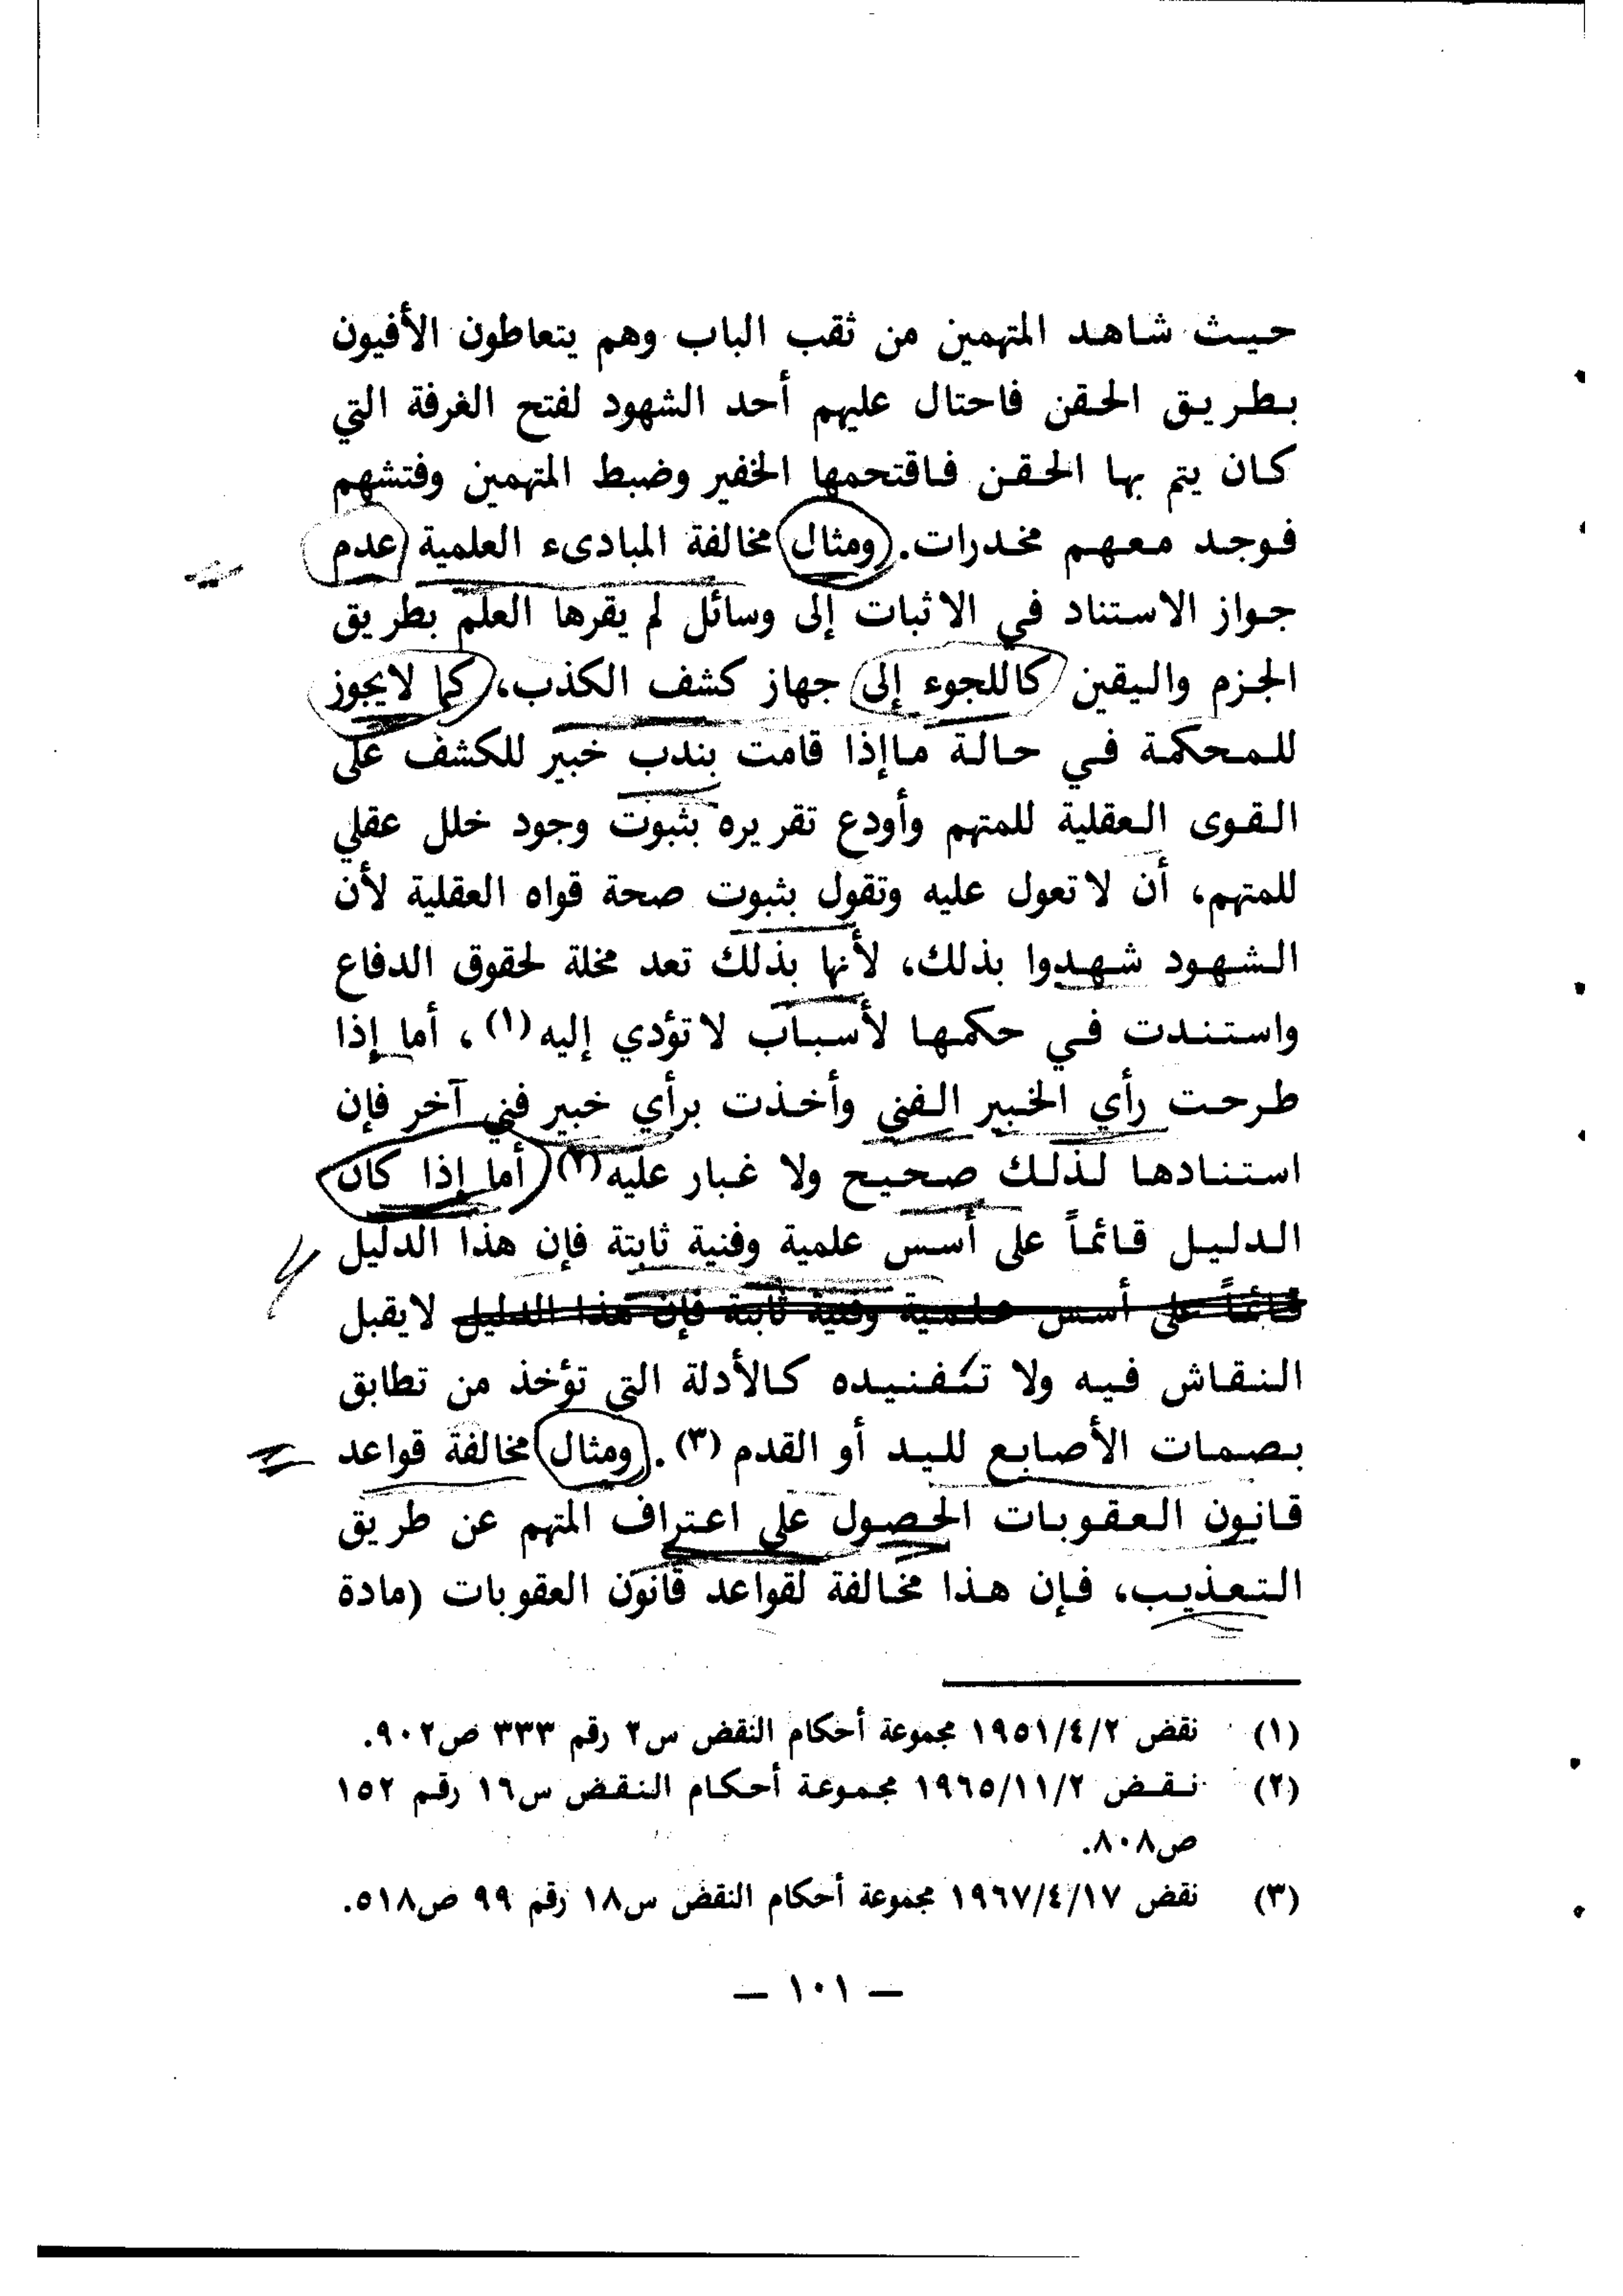 حيث شاهد المتهمين من ثقب الباب وهم يتعاطون الأفيون
بطريق الحقن فاحتال عليهم أحد الشهود لفتح الغرفة التي
كان يتم بها الحقن فاقتحمها الخفير وضبط المتهمين وفتشهم
فوجد معهم مخدرات. ومثال مخالفة المبادىء العلمية عدم
جواز الاستناد في الاثبات إلى وسائل لم يقرها العلم بطريق
الجزم واليقين كاللجوء إلى جهاز كشف الكذب، كما لايجوز
للمحكمة في حالة ماإذا قامت بندب خبير للكشف على
القوى العقلية للمتهم وأودع تقريره بثبوت وجود خلل عقلي
للمتهم، أن لا تعول عليه وتقول بثبوت صحة قواه العقلية لأن
الشهود شهدوا بذلك، لأنها بذلك تعد مخلة لحقوق الدفاع
واستندت في حكمها لأسباب لا تؤدي إليه (١)، أما إذا
طرحت رأي الخبير الفني وأخذت برأي خبير فني آخر فإن
استنادها لذلك صحيح ولا غبار عليه (٢) أما إذا كان
الدليل قائماً على أسس علمية وفنية ثابتة فإن هذا الدليل
قائماً على أسس علمية وفنية ثابتة فإن هذا الدليل لايقبل
النقاش فيه ولا تفنيده كالأدلة التي تؤخذ من تطابق
بصمات الأصابع لليد أو القدم (٣). ومثال مخالفة قواعد
قانون العقوبات الحصول على اعتراف المتهم عن طريق
التعذيب، فإن هذا مخالفة لقواعد قانون العقوبات (مادة
(١) نقض ١٩٥١/٤/٢ مجموعة أحكام النقض س٢ رقم ٣٣٣ ص٩٠٢.
(٢) نقض ١٩٦٥/١١/٢ مجموعة أحكام النقض س١٦ رقم ١٥٢
ص٨٠٨.
(٣) نقض ١٩٦٧/٤/١٧ مجموعة أحكام النقض س١٨ رقم ٩٩ ص٥١٨.
— ١٠١ —